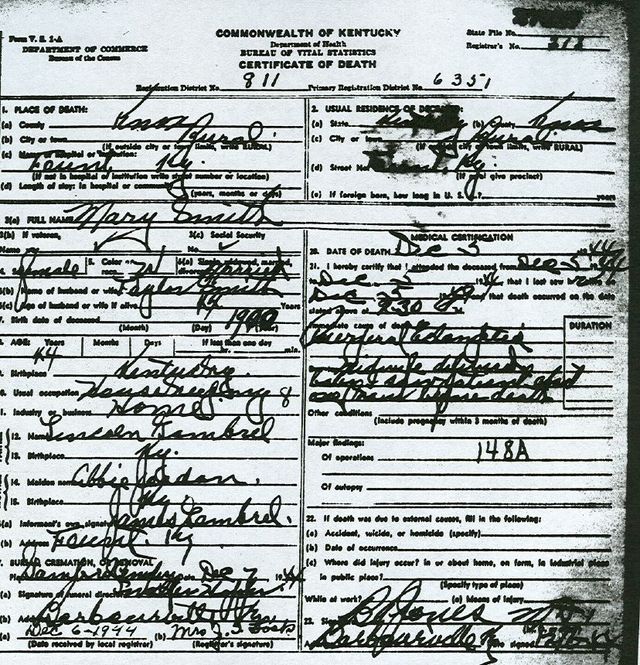 Form V. S. 1-A
DEPARTMENT OF COMMERCE
Bureau of the Census
COMMONWEALTH OF KENTUCKY
Department of Health
BUREAU OF VITAL STATISTICS
CERTIFICATE OF DEATH
State File No.
Registrar's No. 312
Registration District No. 811 Primary Registration District No. 6351
1. PLACE OF DEATH:
(a) County Knox
(b) City or town Rural
(If outside city or town limits, write RURAL)
(c) Name of hospital or institution:
Fount, Ky.
(If not in hospital or institution write street number or location)
(d) Length of stay: in hospital or community
(years, months or days)
2. USUAL RESIDENCE OF DECEASED:
(a) State Kentucky (b) County Knox
(c) City or town Rural
(If outside city or town limits, write RURAL)
(d) Street No. Fount, Ky.
(If rural give precinct)
(e) If foreign born, how long in U. S.? years
3(a) FULL NAME Mary Smith
3(b) If veteran,
Name
3(c) Social Security
No.
4. Female 5. Color or race W 6(a) Single, widowed, married, divorced Married
6(b) Name of husband or wife Taylor Smith
6(c) Age of husband or wife if alive Years
7. Birth date of deceased 1900
(Month) (Day) (Year)
8. AGE: Years 44 Months Days If less than one day
hr. min.
9. Birthplace Kentucky
10. Usual occupation Housekeeping 8
11. Industry or business Home
12. Name Lincoln Gambrel
13. Birthplace Ky.
14. Maiden name Abbie Jordan
15. Birthplace Ky.
16(a) Informant's own signature James Gambrel.
(b) Address Fount, Ky
17. BURIAL, CREMATION, OR REMOVAL
Dec 7 1944
(a) Signature of funeral director
(b) Address Barbourville, Ky.
(a) Dec 6-1944 (b) Mrs J. S.
(Date received by local registrar) (Registrar's signature)
MEDICAL CERTIFICATION
20. DATE OF DEATH Dec 5 1944
21. I hereby certify that I attended the deceased from Dec-5 1944
to Dec-5 1944, that I last saw
Dec-5 and that death occurred on the date
stated above at 2:30
Immediate cause of death
Puerperal Eclampsia
DURATION
Midwife delivered
before death
Other conditions
(Include pregnancy within 3 months of death)
Major findings:
Of operations 148A
Of autopsy
22. If death was due to external causes, fill in the following:
(a) Accident, suicide, or homicide (specify)
(b) Date of occurrence
(c) Where did injury occur? in or about home, on farm, in industrial place
in public place?
(Specify type of place)
While at work? (e) Means of injury
23. Jones
Barbourville Ky